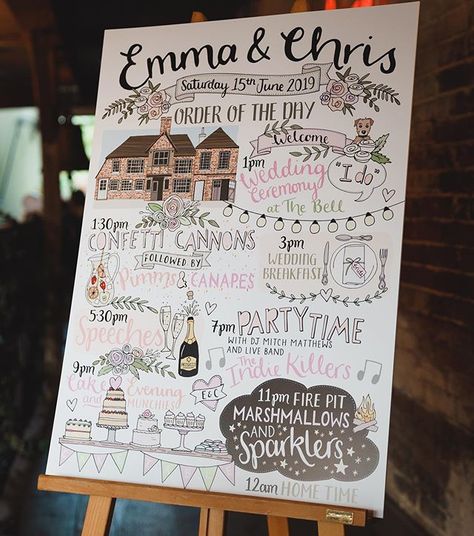 Emma & Chris
Saturday 15th June 2019
ORDER OF THE DAY
Welcome
1pm
Wedding
Ceremony
at The Bell
"I
do"
1:30pm
CONFETTI CANNONS
FOLLOWED BY
Pimms & CANAPES
3pm
WEDDING
BREAKFAST
5:30pm
Speeches
7pm PARTY TIME
WITH DJ MITCH MATTHEWS
AND LIVE BAND
The Indie Killers
9pm
Cake & Evening
MUNCHIES
E&C
11pm FIRE PIT
MARSHMALLOWS
AND Sparklers
12am HOME TIME